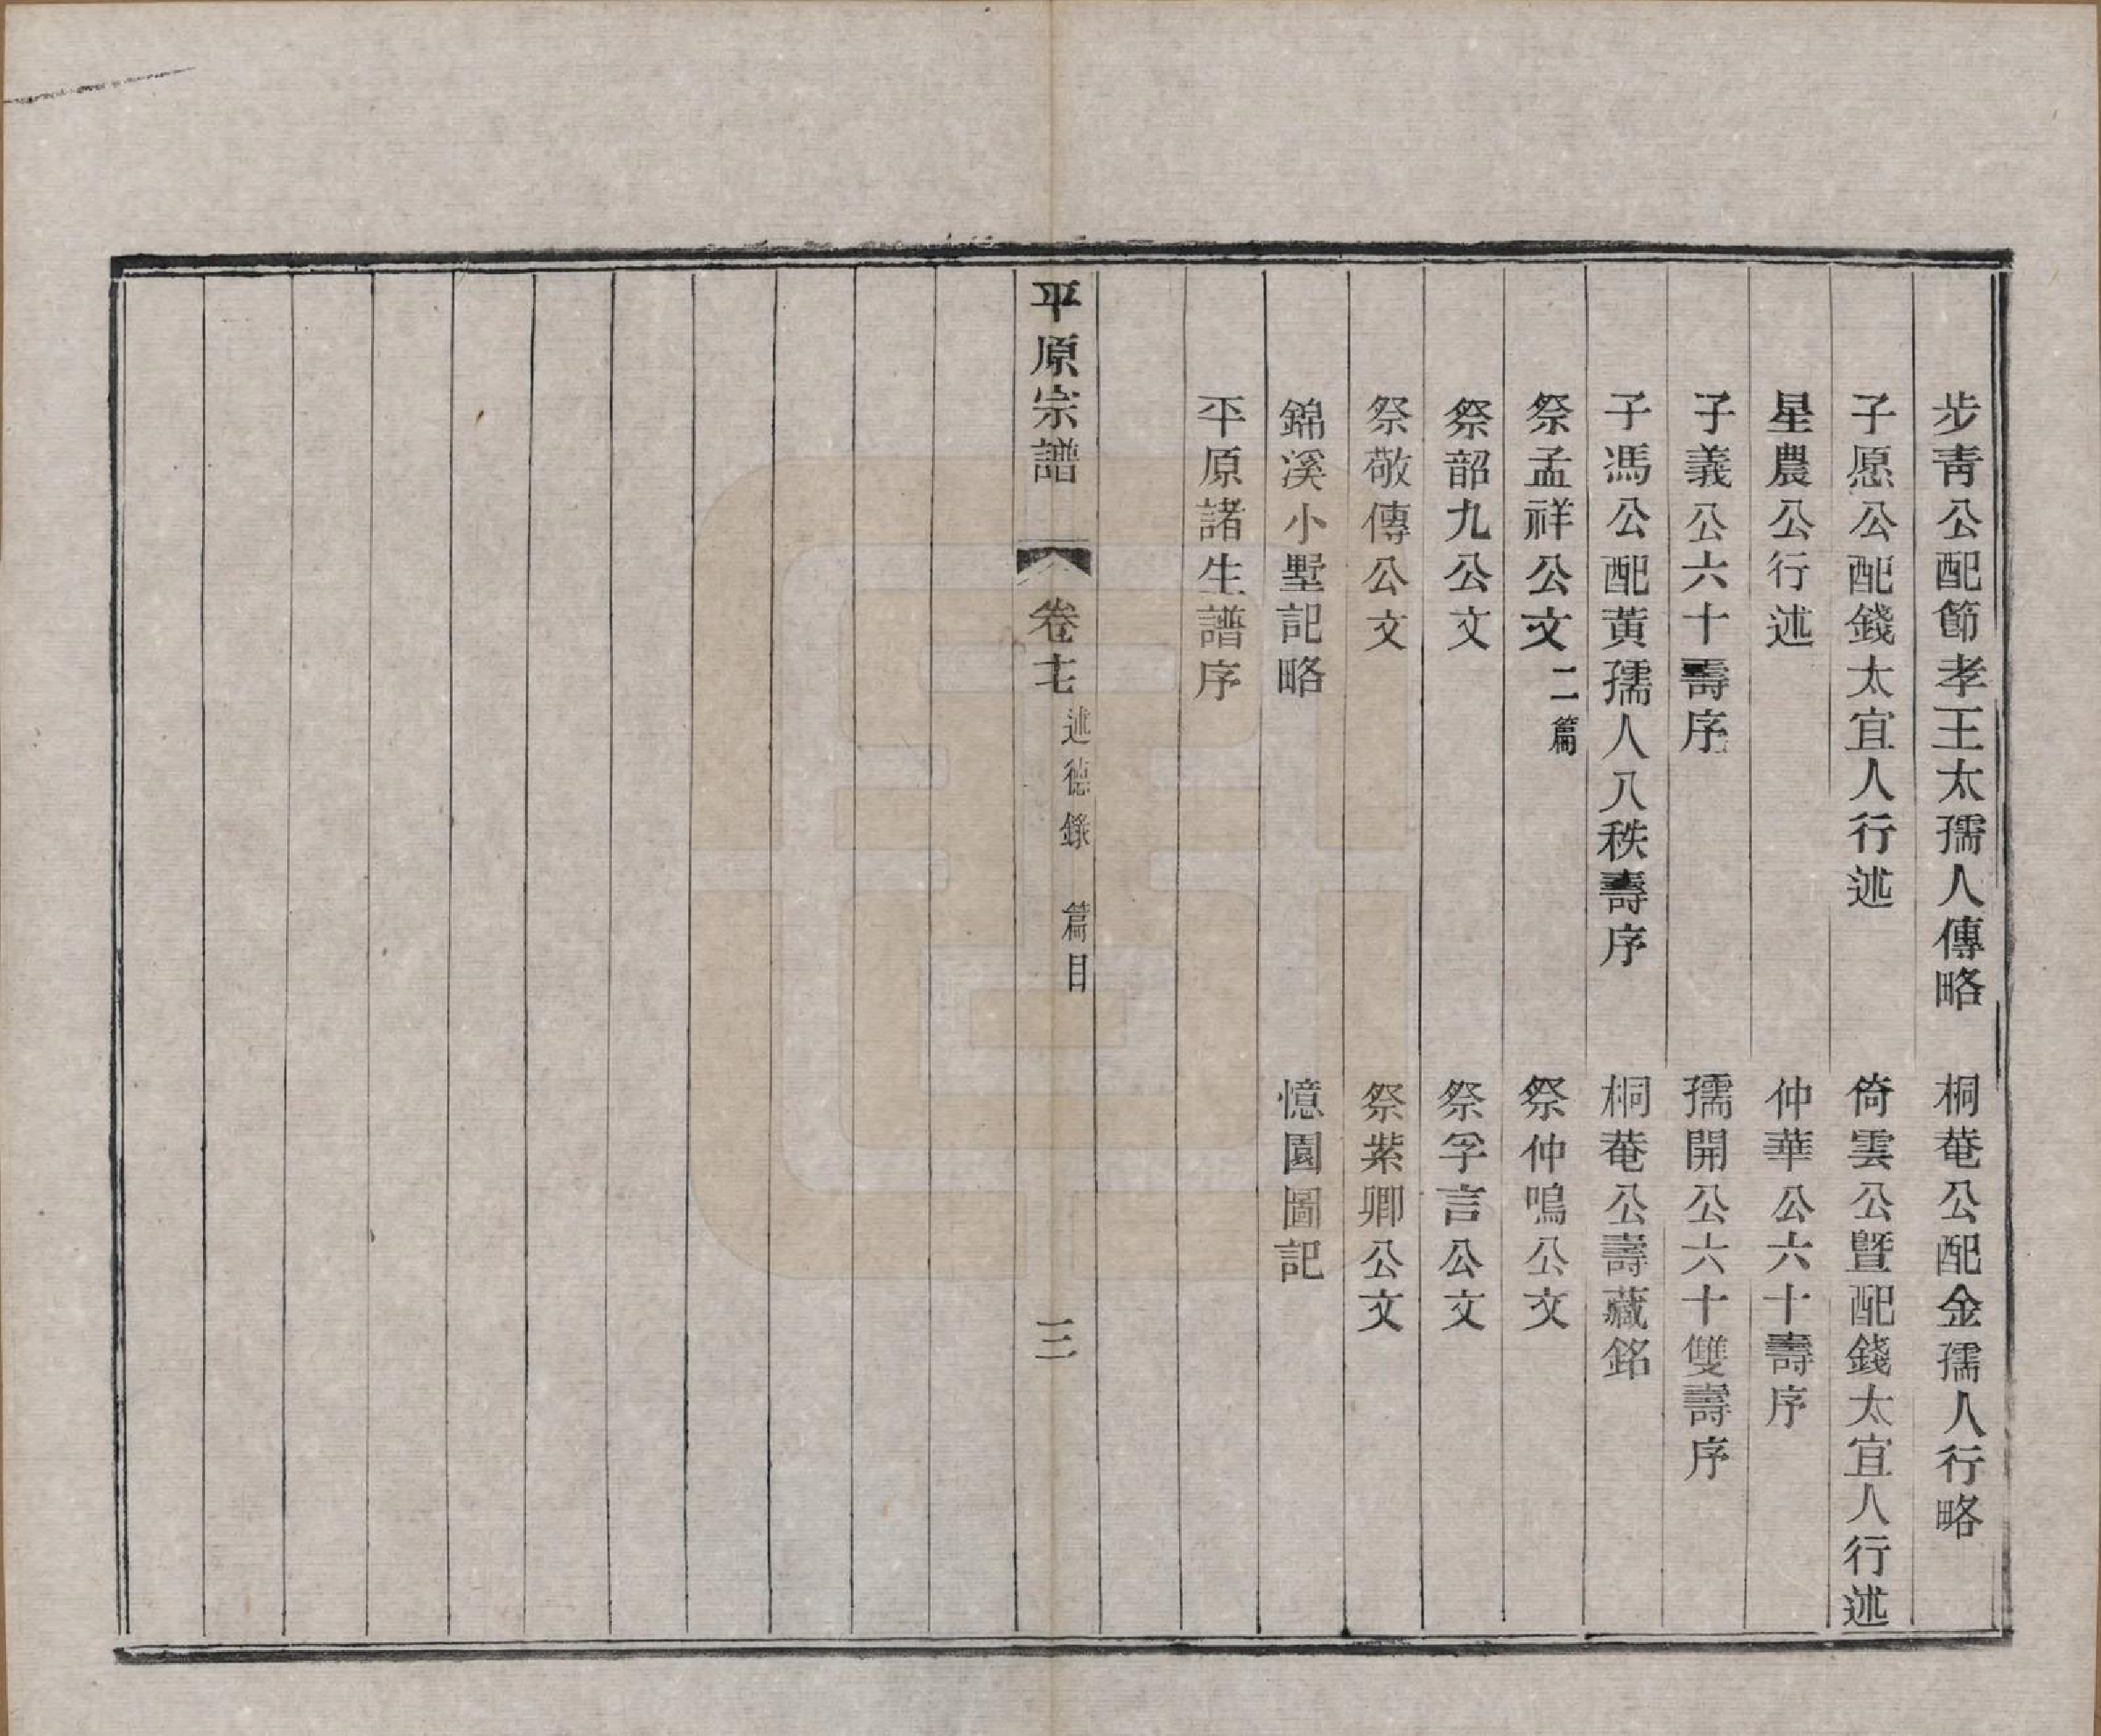 步靑公配節孝王太孺人傳略　桐菴公配金孺人行略
子愿公配錢太宜人行述　倚雲公曁配錢太宜人行述
星農公行述　仲華公六十壽序
子義公六十壽序　孺開公六十雙壽序
子馮公配黃孺人八秩壽序　桐菴公壽藏銘
祭孟祥公文二篇　祭仲鳴公文
祭韶九公文　祭孚言公文
祭敬傳公文　祭紫卿公文
錦溪小墅記略　憶園圖記
平原諸生譜序
平原宗譜　卷十七　述德錄　篇目　三